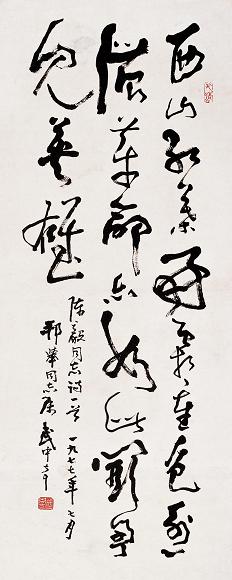 西山红葉好霜重色愈
濃革命亦如此鬥争
見英雄
陈毅同志诗一首 一九七七年七月
同志属 武中奇